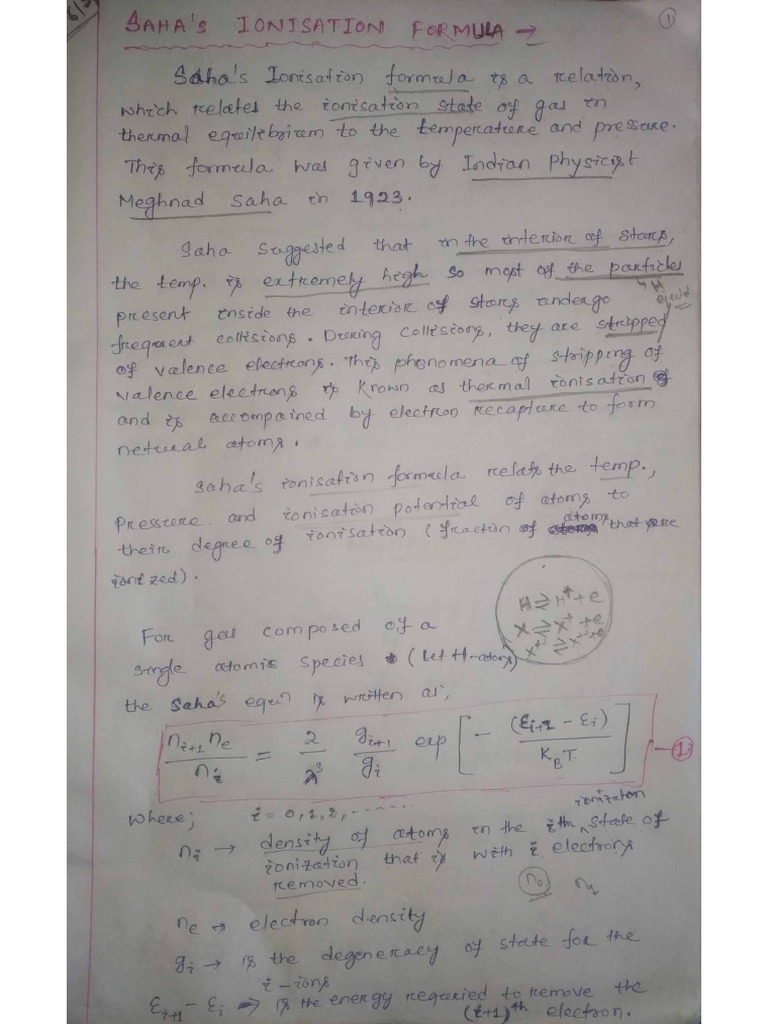 SAHA'S IONISATION FORMULA →
①
Saha's Ionisation formula is a relation,
which relates the ionisation state of gas in
thermal equilibrium to the temperature and pressure.
This formula was given by Indian Physicist
Meghnad Saha in 1923.
Saha suggested that in the interior of stars,
the temp. is extremely high so most of the particles
present inside the interior of stars undergo
frequent collisions. During collisions, they are stripped
of valence electrons. This phenomena of stripping of
valence electrons is known as thermal ionisation
and is accompained by electron recapture to form
netural atoms.
Saha's ionisation formula relats the temp.,
Pressure and ionisation potential of atoms to
their degree of ionisation (fraction of atoms that are
ionized).
H ⇌ H⁺ + e
X ⇌ X⁺ + e
X⁺ ⇌ X⁺⁺ + e
For gas composed of a
single atomic species (Let H-atoms)
the Saha's equⁿ is written as,
n_{i+1} n_e / n_i = 2/λ³ g_{i+1}/g_i exp[ - (ε_{i+1} - ε_i) / K_B T ] — ①
where; i = 0, 1, 2, ......
n_i → density of atoms in the ith ionization state of
ionization that is with i electrons
removed.
n₀
n_e → electron density
g_i → is the degeneracy of state for the
i-ions
ε_{i+1} - ε_i → is the energy requried to remove the
(i+1)ᵗʰ electron.